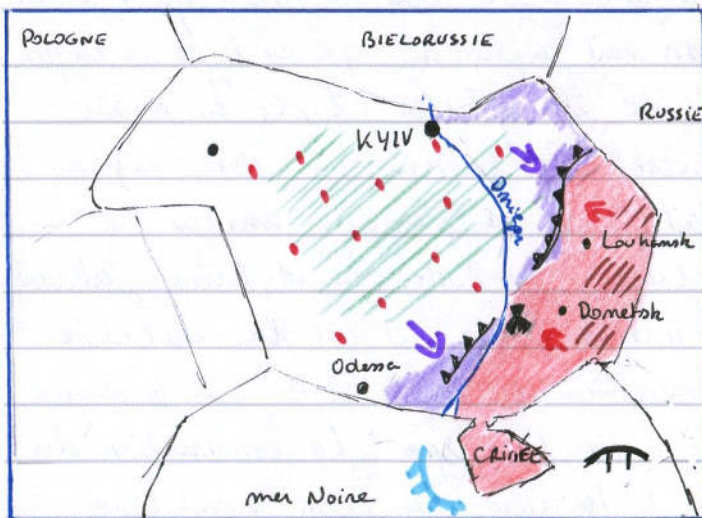 POLOGNE
BIELORUSSIE
RUSSIE
KYIV
Dniepr
Louhansk
Donetsk
Odessa
CRIMÉE
mer Noire